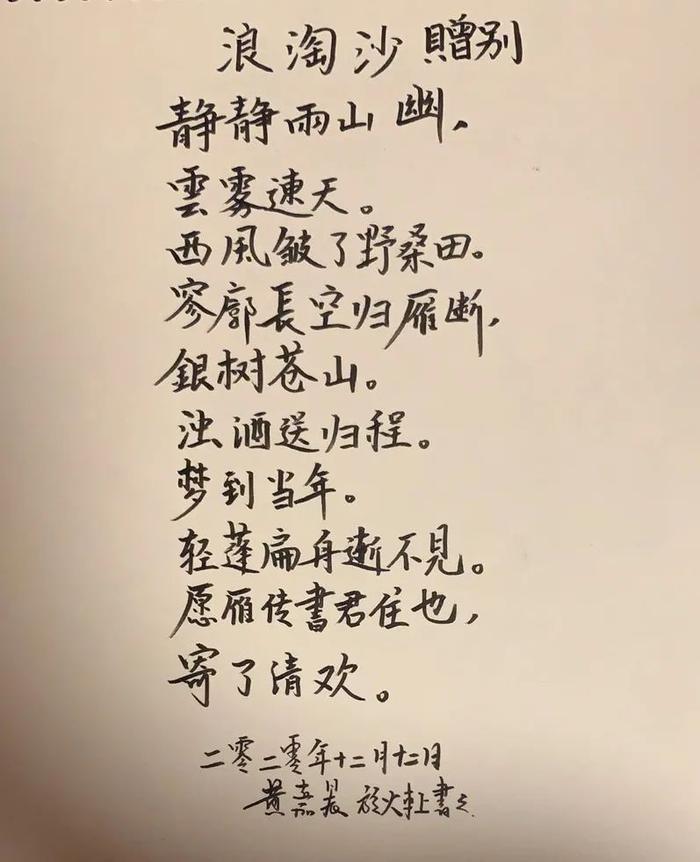 浪淘沙 贈别
静静雨山幽，
雲雾連天。
西風皱了野桑田。
寥廓長空归雁断，
銀树苍山。
浊酒送归程。
梦到当年。
轻蓬扁舟渐不見。
愿雁传書君住也，
寄了清欢。
二零二零年十二月十二日
黄嘉晟 於火車上書之